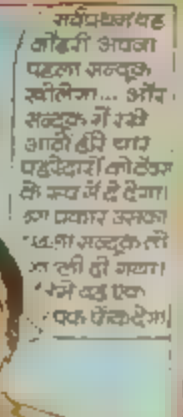 सर्वप्रथम वह
जौहरी अपना
पहला सन्दूक
खोलेगा... और
सन्दूक में रखे
आठों हीरे चार
पहरेदारों को टैक्स
के रूप में दे देगा।
इस प्रकार उसका
सन्दूक तो
ली हो गया।
वह एक
फेंक देगा।